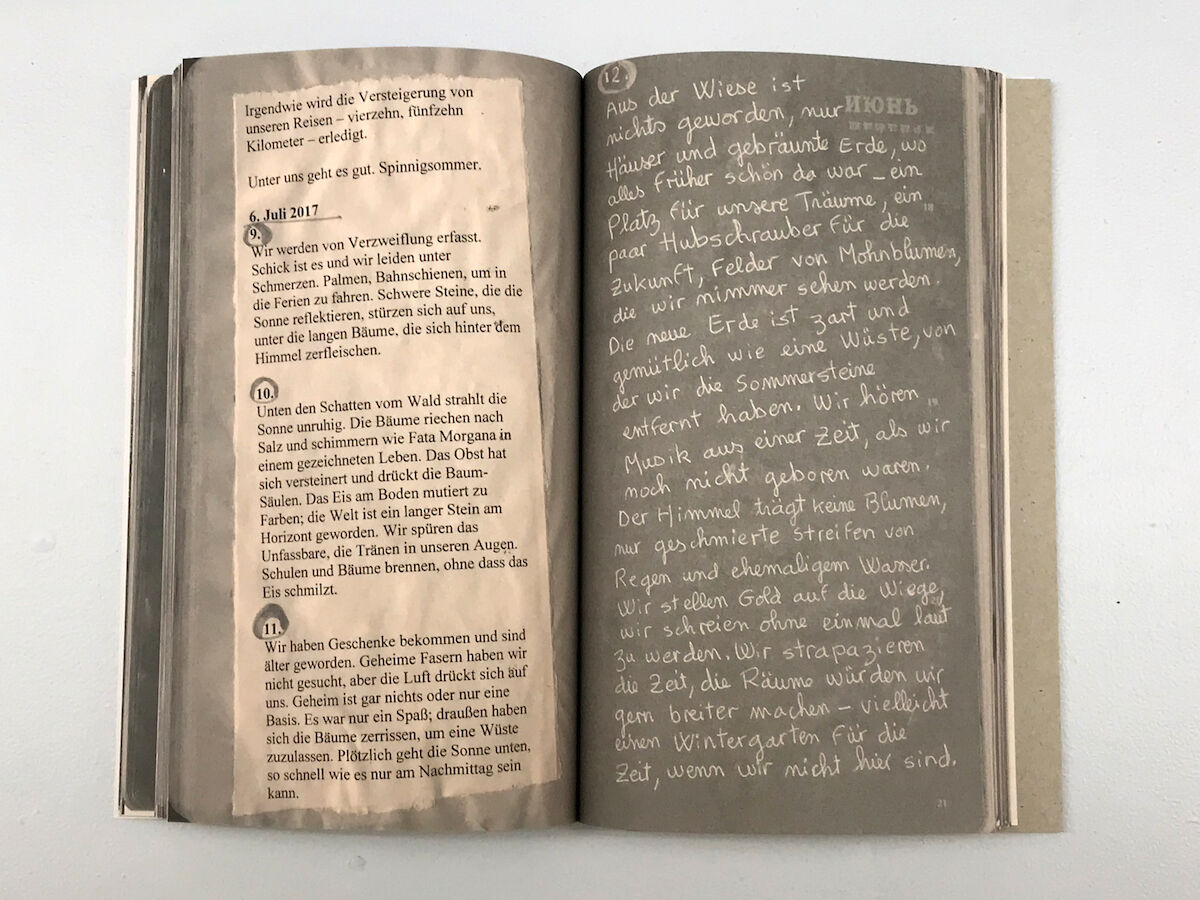 Irgendwie wird die Versteigerung von
unseren Reisen – vierzehn, fünfzehn
Kilometer – erledigt.
Unter uns geht es gut. Spinnigsommer.
6. Juli 2017
9.
Wir werden von Verzweiflung erfasst.
Schick ist es und wir leiden unter
Schmerzen. Palmen, Bahnschienen, um in
die Ferien zu fahren. Schwere Steine, die die
Sonne reflektieren, stürzen sich auf uns,
unter die langen Bäume, die sich hinter dem
Himmel zerfleischen.
10.
Unten den Schatten vom Wald strahlt die
Sonne unruhig. Die Bäume riechen nach
Salz und schimmern wie Fata Morgana in
einem gezeichneten Leben. Das Obst hat
sich versteinert und drückt die Baum-
Säulen. Das Eis am Boden mutiert zu
Farben; die Welt ist ein langer Stein am
Horizont geworden. Wir spüren das
Unfassbare, die Tränen in unseren Augen.
Schulen und Bäume brennen, ohne dass das
Eis schmilzt.
11.
Wir haben Geschenke bekommen und sind
älter geworden. Geheime Fasern haben wir
nicht gesucht, aber die Luft drückt sich auf
uns. Geheim ist gar nichts oder nur eine
Basis. Es war nur ein Spaß; draußen haben
sich die Bäume zerrissen, um eine Wüste
zuzulassen. Plötzlich geht die Sonne unten,
so schnell wie es nur am Nachmittag sein
kann.
12.
Aus der Wiese ist
nichts geworden, nur
Häuser und gebräunte Erde, wo
alles früher schön da war – ein
Platz für unsere Träume, ein
paar Hubschrauber für die
Zukunft, Felder von Mohnblumen,
die wir nimmer sehen werden.
Die neue Erde ist zart und
gemütlich wie eine Wüste, von
der wir die Sommersteine
entfernt haben. Wir hören
Musik aus einer Zeit, als wir
noch nicht geboren waren.
Der Himmel trägt keine Blumen,
nur geschmierte Streifen von
Regen und ehemaligem Wasser.
Wir stellen Gold auf die Wiege,
wir schreien ohne einmal laut
zu werden. Wir strapazieren
die Zeit, die Räume würden wir
gern breiter machen – vielleicht
einen Wintergarten für die
Zeit, wenn wir nicht hier sind.
ИЮНЬ
21